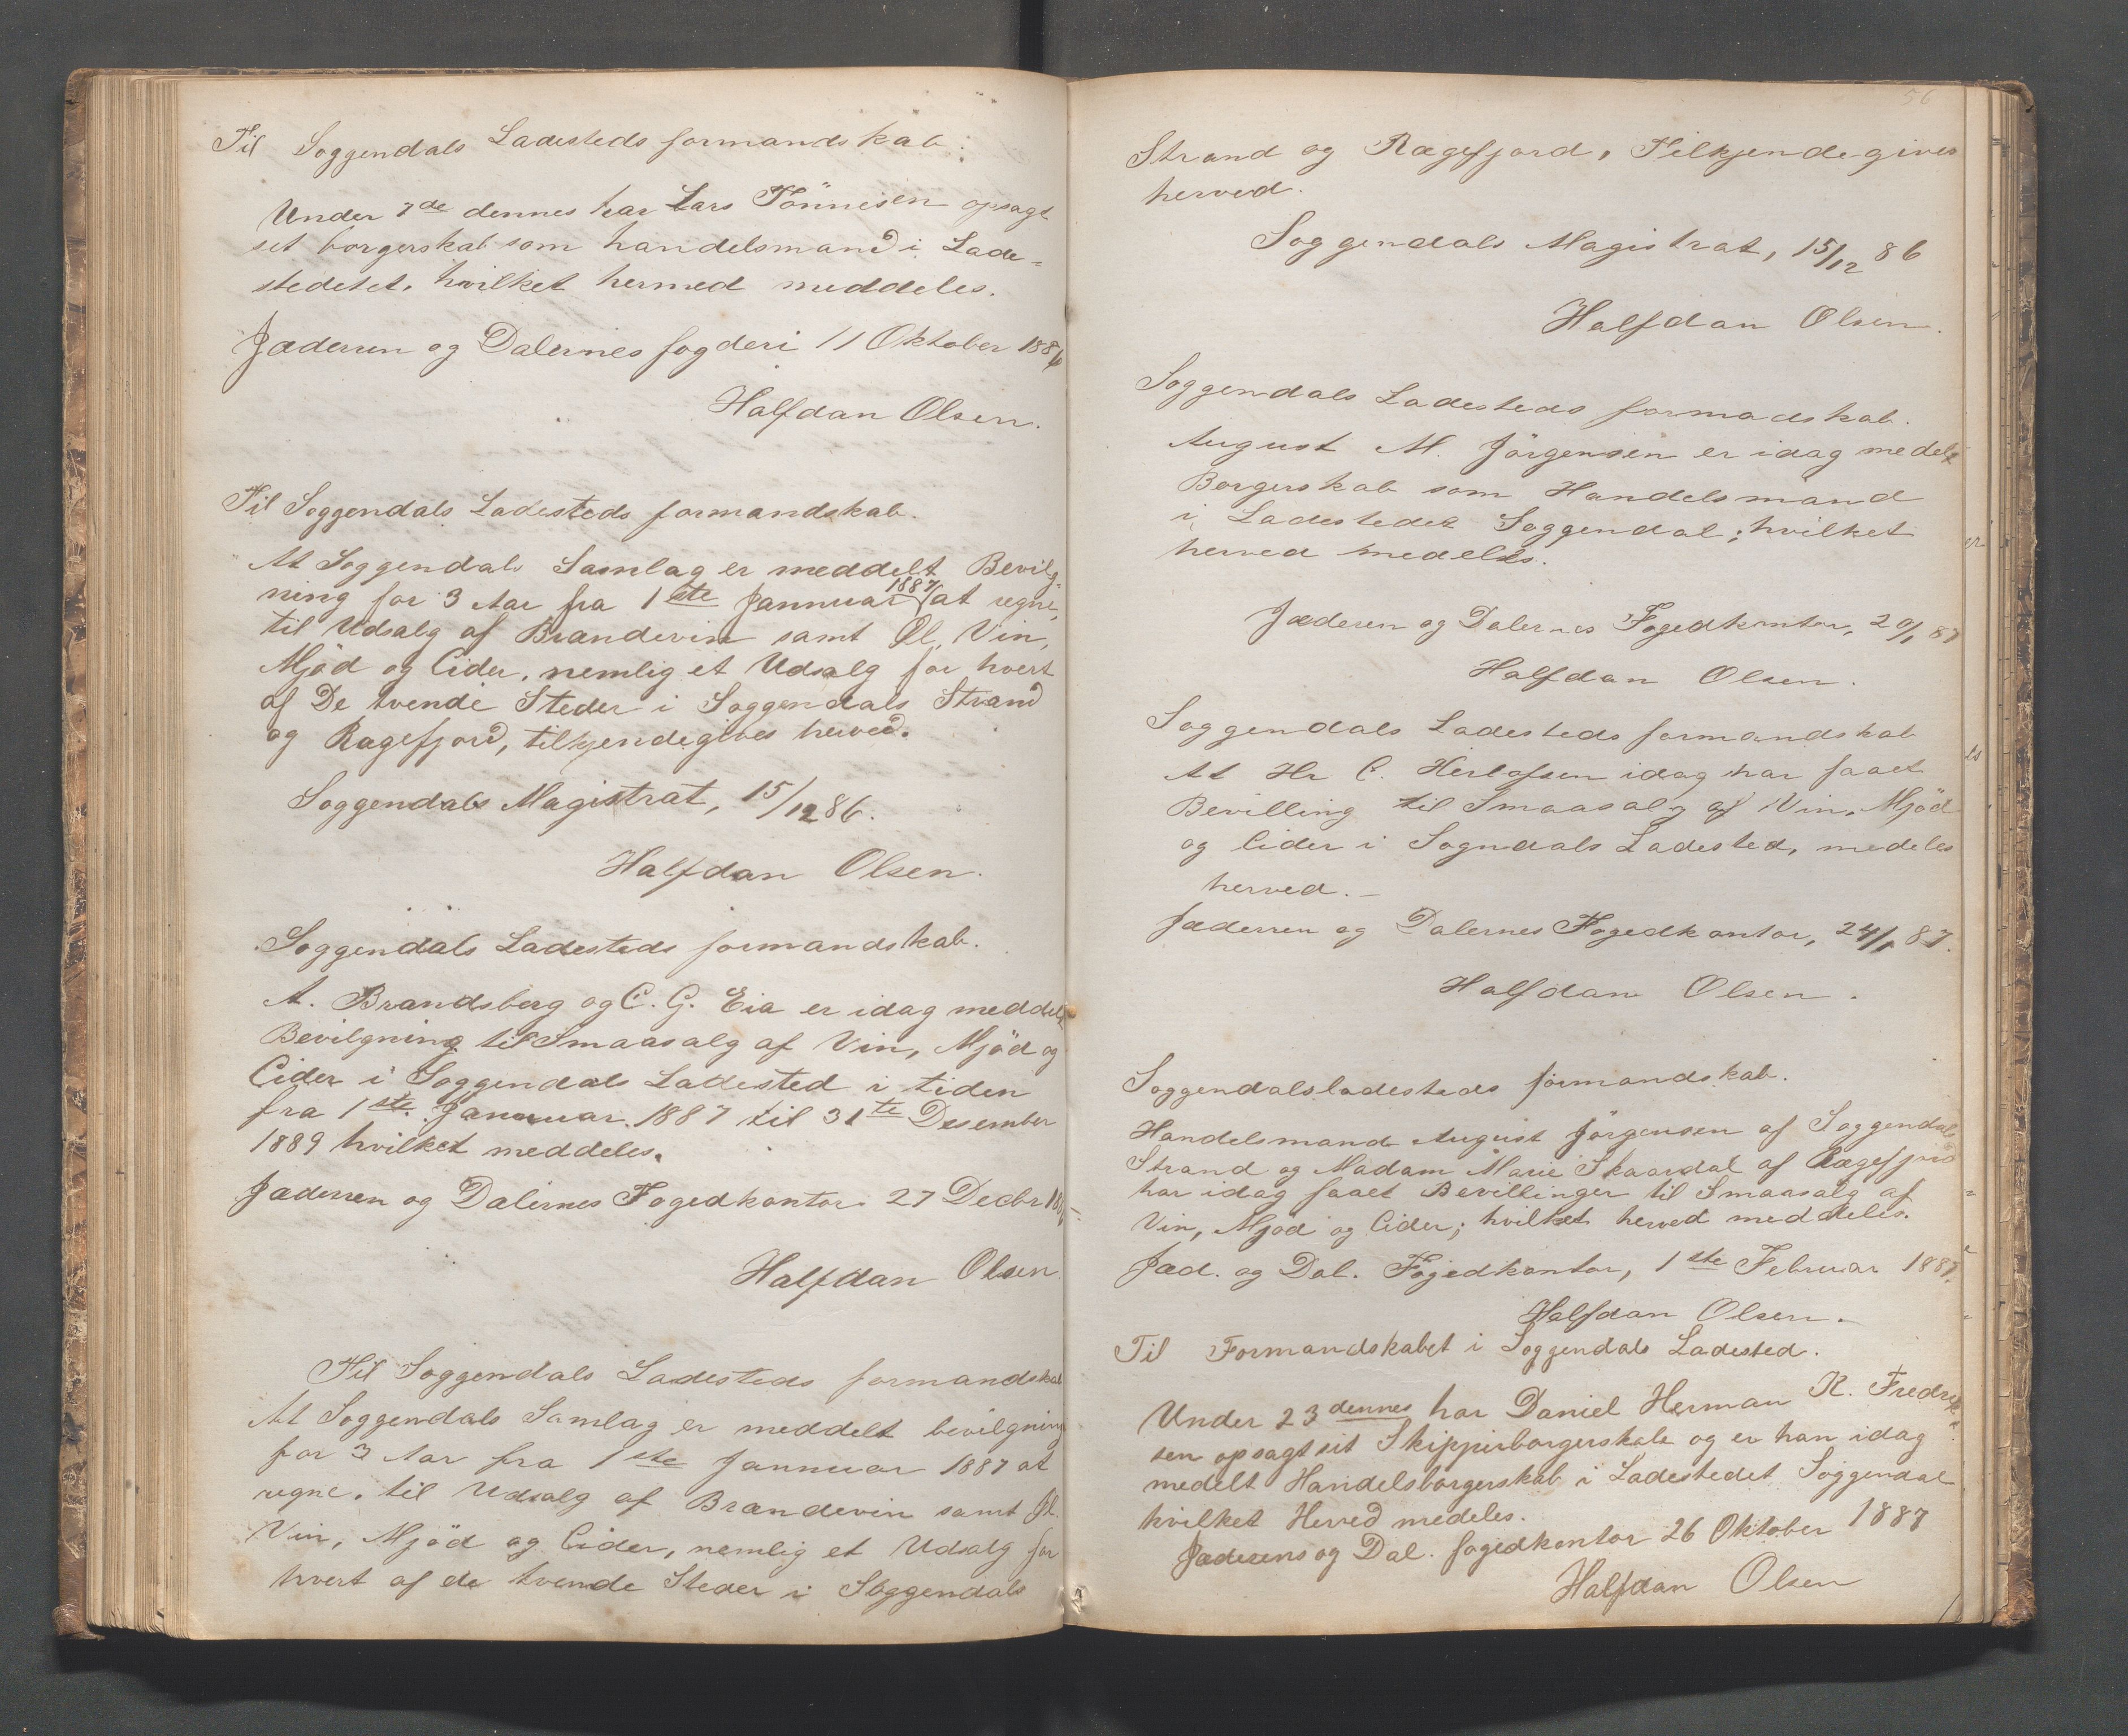 Til Soggendals Ladesteds formandskab.
Under 7de dennes har Lars Tönnisen opsagt
sit borgerskab som handelsmand i Lade=
stedetet, hvilket hermed meddeles.
Jæderen og Dalernes fogderi 11 Oktober 1886
Halfdan Olsen.
Til Soggendals Ladesteds formandskab.
At Soggendals Samlag er meddelt Bevilg=
ning for 3 Aar fra 1ste Jannuar 1887 at regne,
til Udsalg af Brændevin samt Øl, Vin,
Mjöd og Cider, nemlig et Udsalg for hvert
af De tvende Steder i Soggendals Strand
og Rægefjord, tilkjendegives herved.
Soggendals Magistrat, 15/12 86.
Halfdan Olsen.
Soggendals Ladesteds formandskab.
A. Brandsberg og C. G. Eia er idag meddelt
Bevilgning til Smaasalg af Vin, Mjöd og
Cider i Soggendals Ladested i tiden
fra 1ste Januar 1887 til 31te Desember
1889 hvilket meddeles.
Jæderen og Dalernes Fogedkontor 27 Decbr 1886
Halfdan Olsen
Til Soggendals Ladesteds formandskab
At Soggendals Samlag er meddelt bevilgning
for 3 Aar fra 1ste Jannuar 1887 at
regne, til Udsalg af Brændevin samt Øl.
Vin, Mjöd og Cider, nemlig et Udsalg for
hvert af de tvende Steder i Soggendals
56
Strand og Rægefjord, Tilkjendegives
herved.
Soggendals Magistrat, 15/12 86
Halfdan Olsen.
Soggendals Ladesteds formadskab.
August M. Jörgensen er idag medelt
Borgerskab som Handelsmand
i Ladestedet Soggendal; hvilket
herved medeles.
Jæderen og Dalernes Fogedkontor, 20/1 87
Halfdan Olsen.
Soggendals Ladesteds formandskab
At Hr C. Herlofsen idag har faaet
Bevilling til Smaasalg af Vin, Mjöd
og Cider i Sogndals Ladested, medeles
herved.—
Jæderen og Dalernes Fogedkontor, 24/1 87.
Halfdan Olsen.
Soggendalsladesteds formandskab.
Handelsmand August Jörgensen af Soggendals
Strand og Madam Marie Skaardal af Rægefjord
har idag faaet Bevillinger til Smaasalg af
Vin, Mjöd og Cider; hvilket herved meddeles.
Jæd. og Dal. Fogedkontor, 1ste Februar 1887.
Halfdan Olsen.
Til Formandskabet i Soggendals Ladested.
Under 23 dennes har Daniel Herman R. Fredrik=
sen opsagt sit Skipperborgerskab og er han idag
medelt Handelsborgerskab i Ladestedet Soggendal
hvilket Herved medeles.
Jæderens og Dal. fogedkontor 26 Oktober 1887
Halfdan Olsen